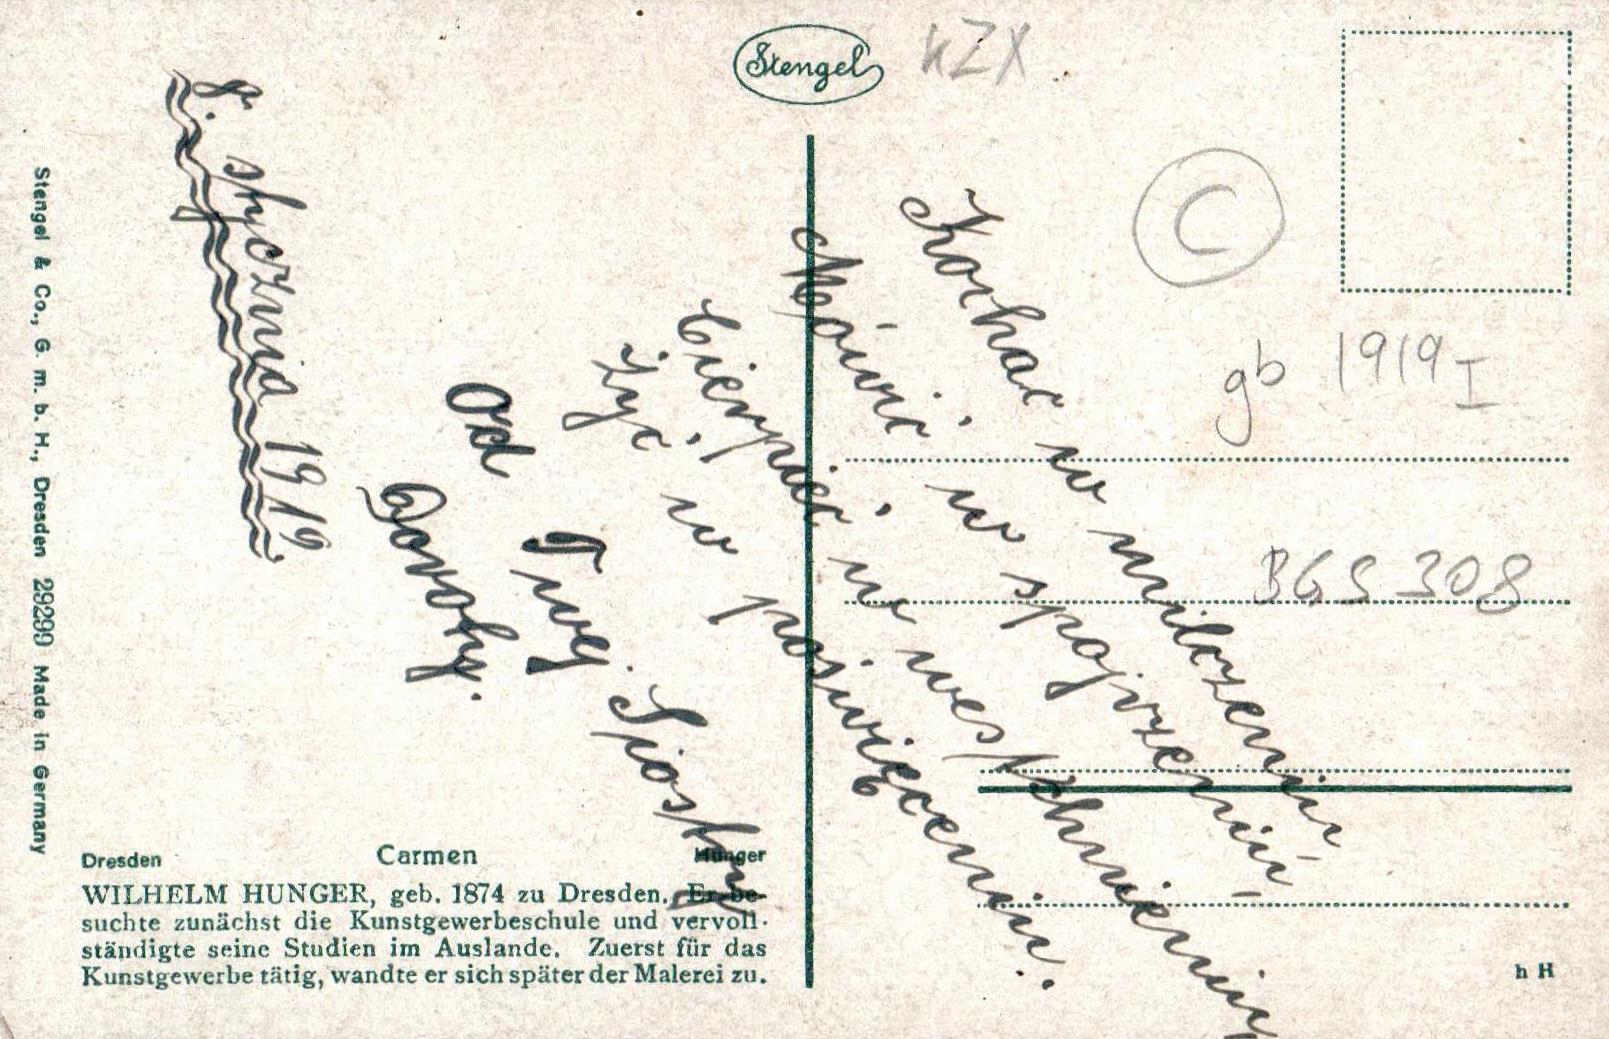 Stengel
kZX
C
gb 1919 I
BGS 308
Kochać w milczeniu
Mówić w spojrzeniu,
Cierpieć w westchnieniu
Żyć w poświęceniu.
Od Twej Siostry
Doroty.
8. stycznia 1919
Stengel & Co., G. m. b. H., Dresden 29299 Made in Germany
Dresden Carmen Hunger
WILHELM HUNGER, geb. 1874 zu Dresden. Er be-
suchte zunächst die Kunstgewerbeschule und vervoll-
ständigte seine Studien im Auslande. Zuerst für das
Kunstgewerbe tätig, wandte er sich später der Malerei zu.
h H